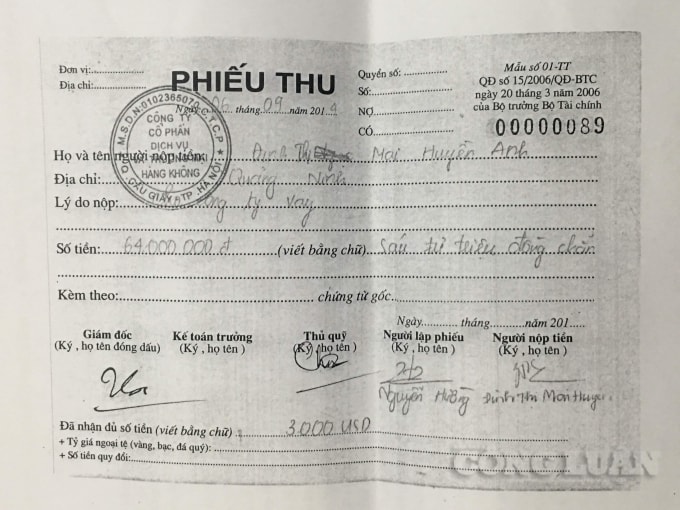 Đơn vị:
Địa chỉ:
PHIẾU THU
Ngày 06 tháng 09 năm 2019
Quyển số:
Số:
NỢ
CÓ
Mẫu số 01-TT
QĐ số 15/2006/QĐ-BTC
ngày 20 tháng 3 năm 2006
của Bộ trưởng Bộ Tài chính
00000089
M.S.D.N:0102365070-C.T.C.P
CÔNG TY
CỔ PHẦN
DỊCH VỤ
HÀNG KHÔNG
Q. CẦU GIẤY - TP. HÀ NỘI
Họ và tên người nộp tiền: Đinh Thị Mai Huyền Anh
Địa chỉ: Quảng Ninh
Lý do nộp: Công ty vay
Số tiền: 64.000.000 đ (viết bằng chữ) Sáu tư triệu đồng chẵn
Kèm theo: chứng từ gốc
Ngày tháng năm 201
Giám đốc Kế toán trưởng Thủ quỹ Người lập phiếu Người nộp tiền
(Ký , họ tên đóng dấu) (Ký , họ tên ) (Ký , họ tên ) (Ký , họ tên ) (Ký , họ tên )
Nguyễn Hường Đinh Thị
Đã nhận đủ số tiền (viết bằng chữ) : 3.000 USD
+ Tỷ giá ngoại tệ (vàng, bạc, đá quý):
+ Số tiền quy đổi:
CONGLUAN